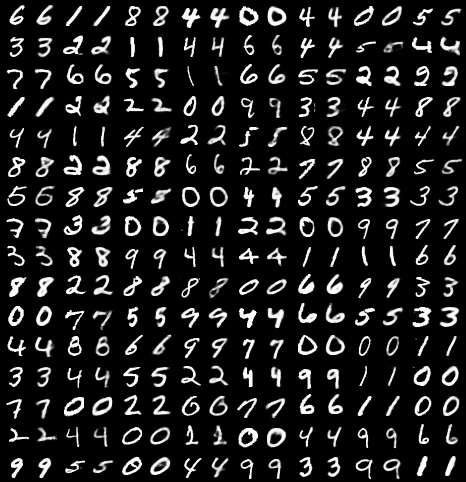 6 6 1 1 8 8 4 4 0 0 4 4 0 0 5 5
3 3 2 2 1 1 4 4 6 6 4 4 5 5 4 4
7 7 6 6 5 5 1 1 6 6 5 5 2 2 2 2
1 1 2 2 2 2 0 0 9 9 3 3 4 4 8 8
9 9 1 1 4 4 2 2 5 5 8 8 4 4 4 4
8 8 2 2 8 8 6 6 2 2 7 7 8 8 5 5
5 5 8 8 5 5 0 0 4 4 5 5 3 3 3 3
7 7 3 3 0 0 1 1 2 2 0 0 9 9 7 7
3 3 8 8 9 9 4 4 4 4 1 1 1 1 6 6
8 8 2 2 8 8 8 8 0 0 6 6 9 9 3 3
0 0 7 7 5 5 9 9 4 4 6 6 5 5 3 3
4 4 8 8 6 6 9 9 7 7 0 0 0 0 1 1
3 3 4 4 5 5 2 2 4 4 9 9 1 1 0 0
7 7 0 0 2 2 6 6 7 7 6 6 1 1 0 0
2 2 4 4 0 0 1 1 0 0 4 4 9 9 6 6
9 9 5 5 0 0 4 4 9 9 3 3 9 9 1 1